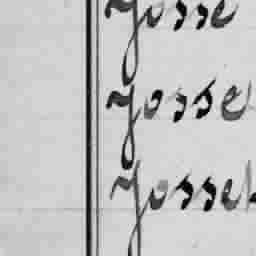 Josse
Josse
Josset